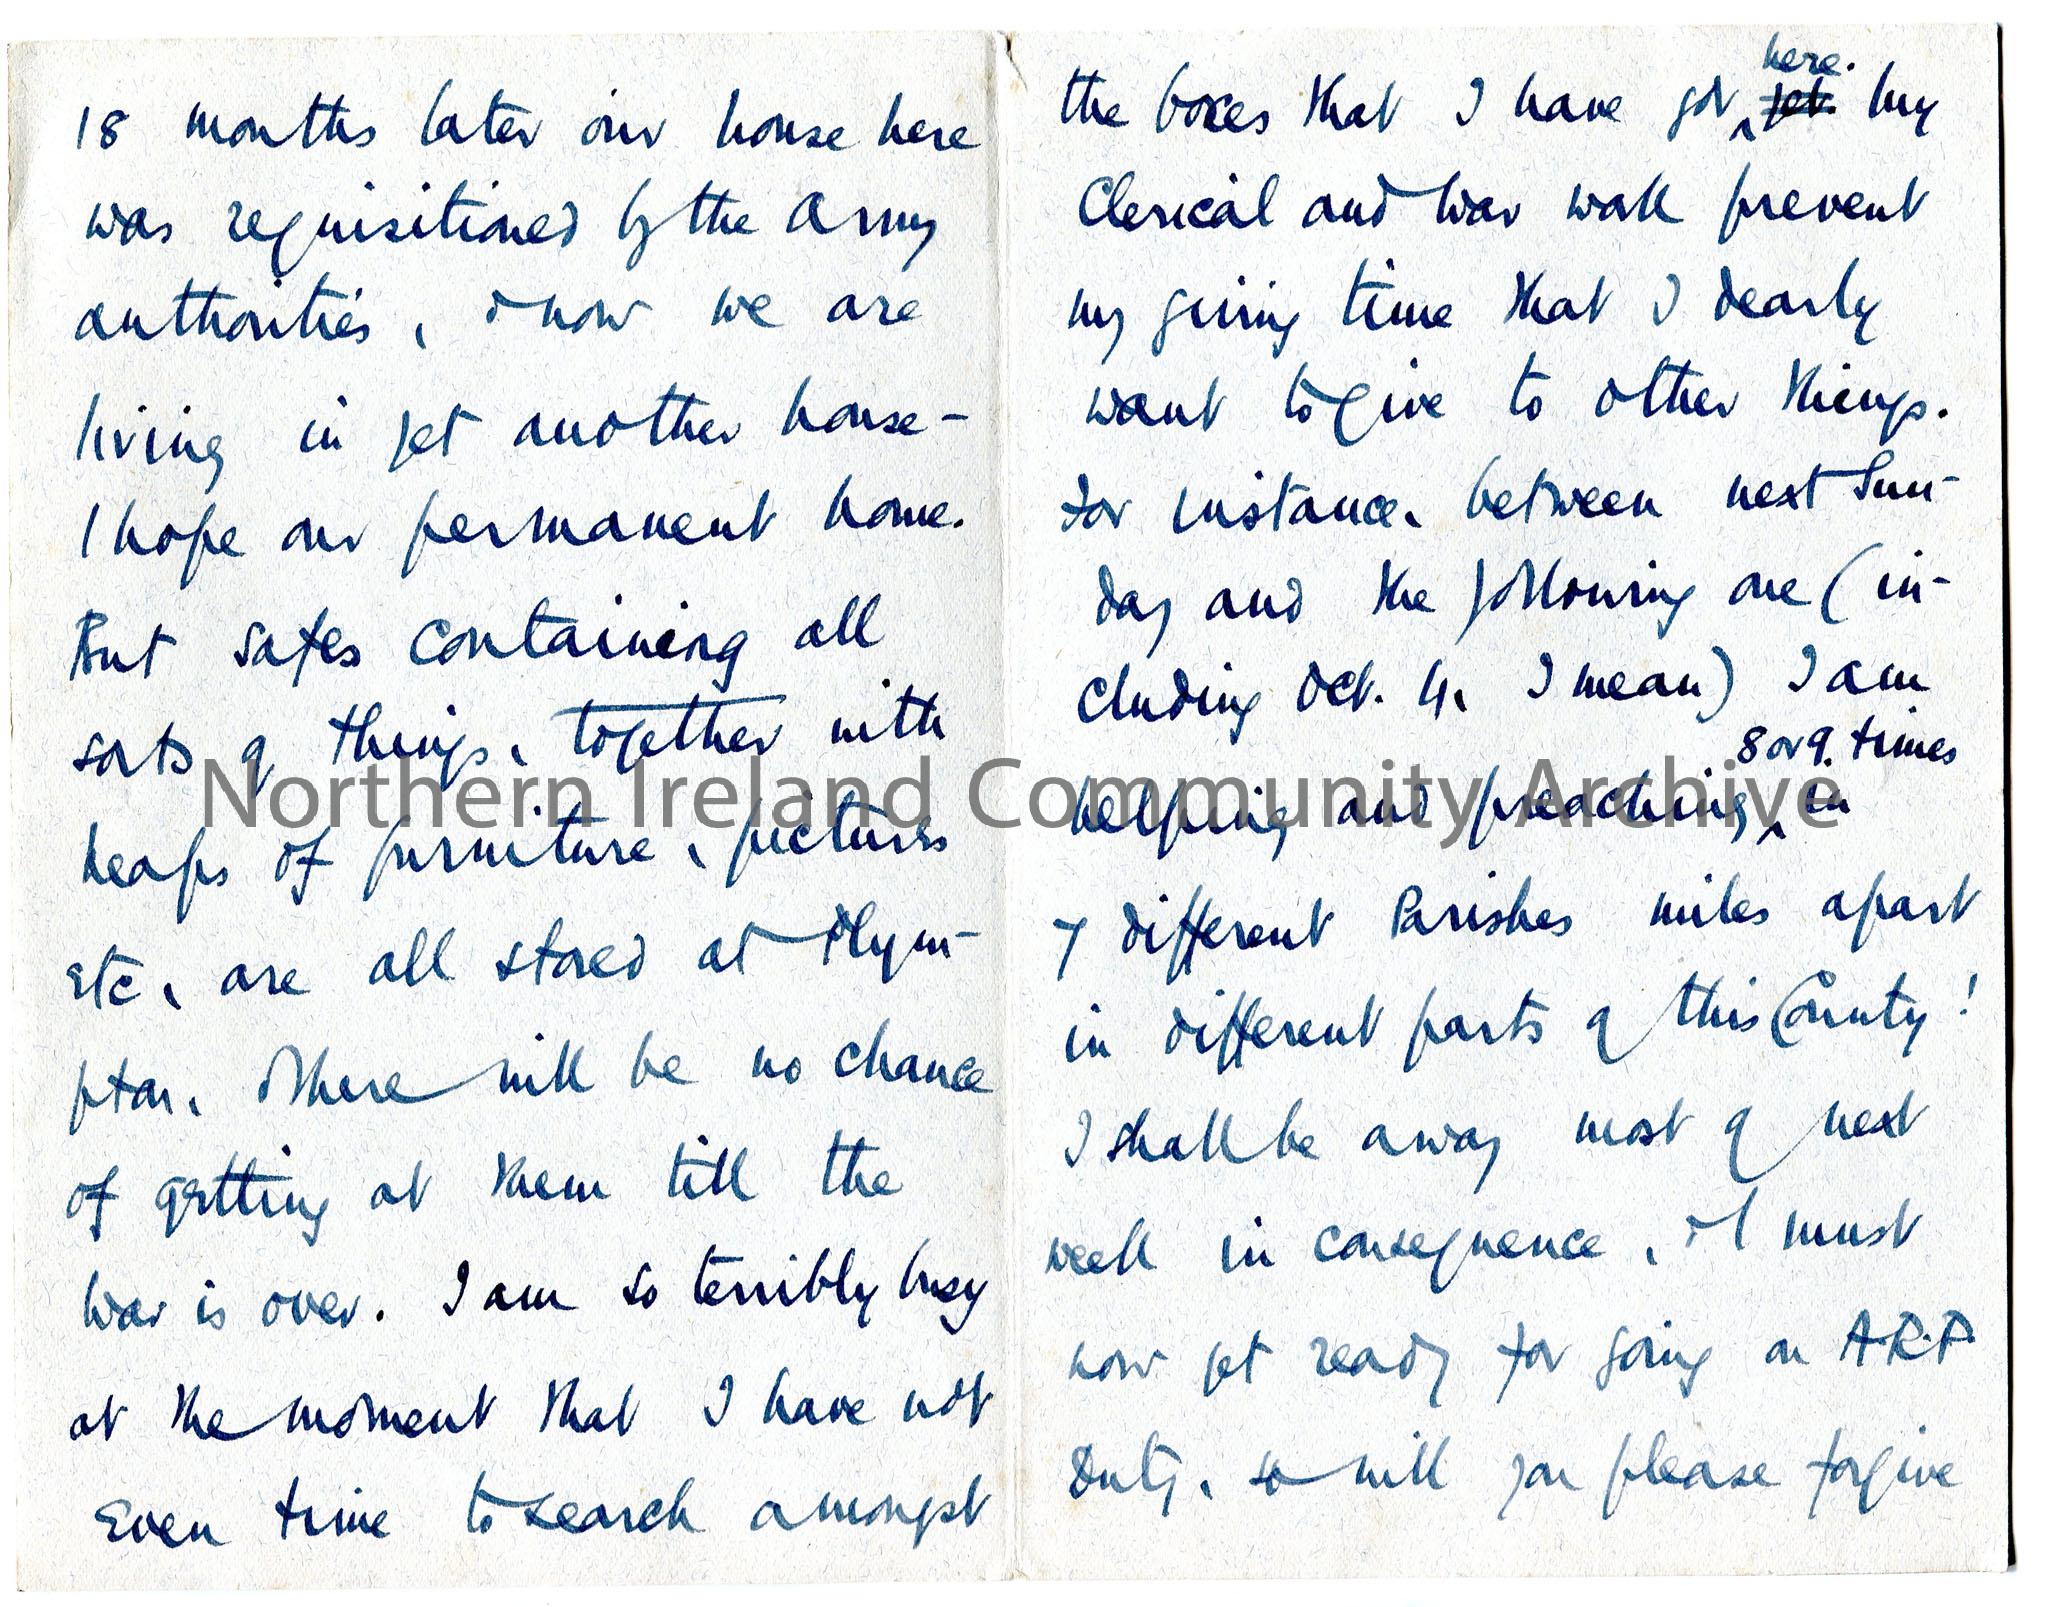 18 months later our house here
was requisitioned by the Army
authorities, & now we are
living in yet another house –
I hope our permanent home.
But safes containing all
sorts of things, together with
heaps of furniture, pictures
etc, are all stored at Plym–
pton. There will be no chance
of getting at them till the
War is over. I am so terribly busy
at the moment that I have not
even time to search amongst
the boxes that I have got ^ here. ~~yet.~~ My
Clerical and War work prevent
my giving time that I dearly
want to give to other things.
For instance, between next Sun–
day and the following one (in–
cluding Oct. 4, I mean) I am
helping and preaching ^ 8 or 9 times in
7 different Parishes miles apart
in different parts of this County!
I shall be away most of next
week in consequence, & I must
now get ready for going on A.R.P.
Duty, so will you please forgive
Northern Ireland Community Archive